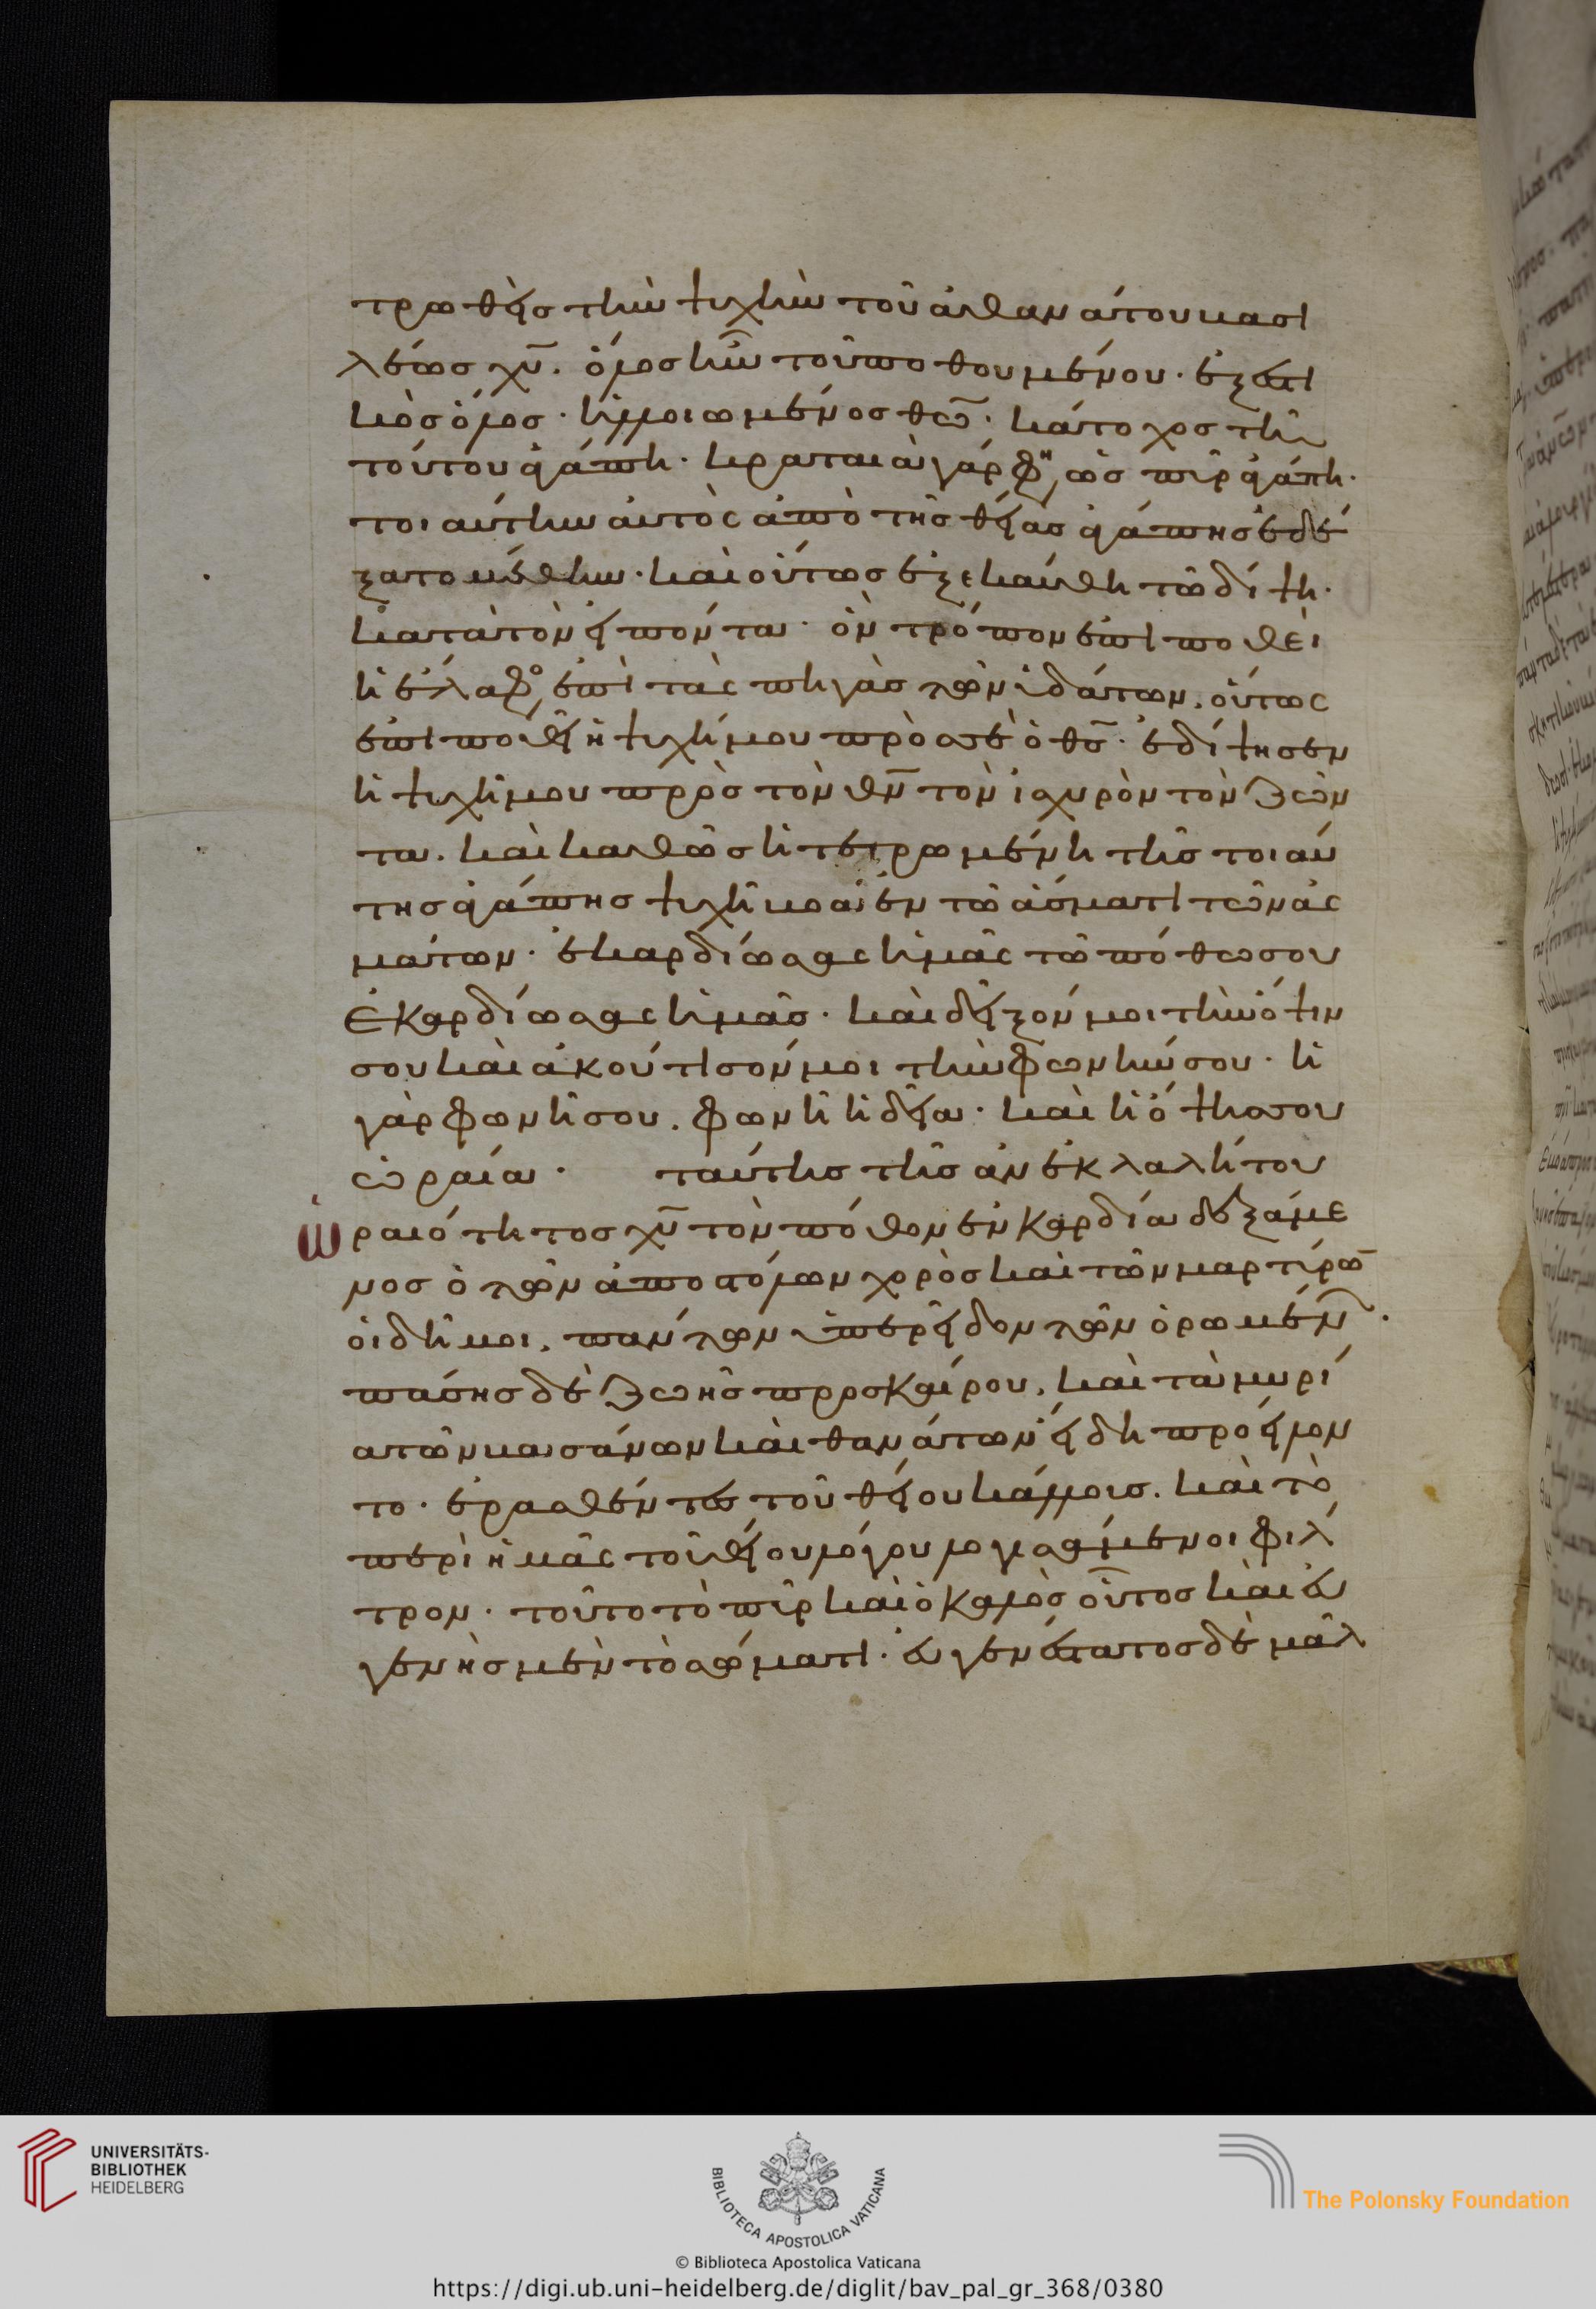 τρωθεὶς τὴν ψυχὴν τοῦ ἀθανάτου βασι
λέως χυ̅. ὅλος ἦν τοῦ ποθουμένου· ἐξεστι
κὸς ὅλος· ἠλλοιωμένος θεῶ· κάτοχος τῆ
τούτου ἀγάπη· κραταιὰ γάρ φη, ὡς πῦρ ἀγάπη·
τοιαύτην αὐτὸς ἀπὸ τῆς θείας ἀγάπης ἐδέ
ξατο μέθην· καὶ οὕτως ἐξεκαύθη τῶ δίψη·
κατὰ τὸν εἰπόντα· ὃν τρόπον ἐπιποθεῖ
ἡ ἔλαφο, ἐπὶ τὰς πηγὰς τῶν ὑδάτων, οὕτως
ἐπιποθεῖ ἡ ψυχή μου πρὸς σὲ ὁ θς̅· ἐδίψησεν
ἡ ψυχή μου πρὸς τὸν θν̅ τὸν ἰσχυρὸν τὸν ζῶν
τα. καὶ καθὼς ἡ τετρωμένη τῆς τοιαύ
της ἀγάπης ψυχὴ βοᾶ ἐν τῶ ἄσματι τῶν ἀσ
μάτων· ἐκαρδίωσας ἡμᾶς τῶ πόθω σου
ἐκαρδίωσας ἡμᾶς· καὶ δεῖξόν μοι τὴν ὄψιν
σου καὶ ἀκούτισόν μοι τὴν φωνήν σου· ἡ
γὰρ φωνή σου, φωνὴ ἡδεῖα· καὶ ἡ ὄψις σου
ὡραία· ταύτης τῆς ἀνεκλαλήτου
ὡραιότητος χυ̅ τὸν πόθον ἐν καρδία δεξάμε
νος ὁ τῶν ἀποστόλων χορὸς καὶ τῶν μαρτύρω̅
οἱ δῆμοι, πάντων ὑπερεῖδον τῶν ὁρωμέν·
πάσης δὲ ζωῆς προσκαίρου, καὶ τὰ μυρί
α τῶν βασάνων καὶ θανάτων εἴδη προείλον
το· ἐρασθέντες τοῦ θείου κάλλοις. καὶ τὸ
περὶ ἡμᾶς τοῦ θείου λόγου λογισάμενοι φίλ
τρον· τοῦτο τὸ πῦρ καὶ ὁ καλὸς οὗτος καὶ εὐ
γενὴς μὲν τὸ σώματι· εὐγενέστατος δὲ μᾶλ
UNIVERSITÄTS-
BIBLIOTHEK
HEIDELBERG
BIBLIOTECA APOSTOLICA VATICANA
The Polonsky Foundation
© Biblioteca Apostolica Vaticana
https://digi.ub.uni-heidelberg.de/diglit/bav_pal_gr_368/0380